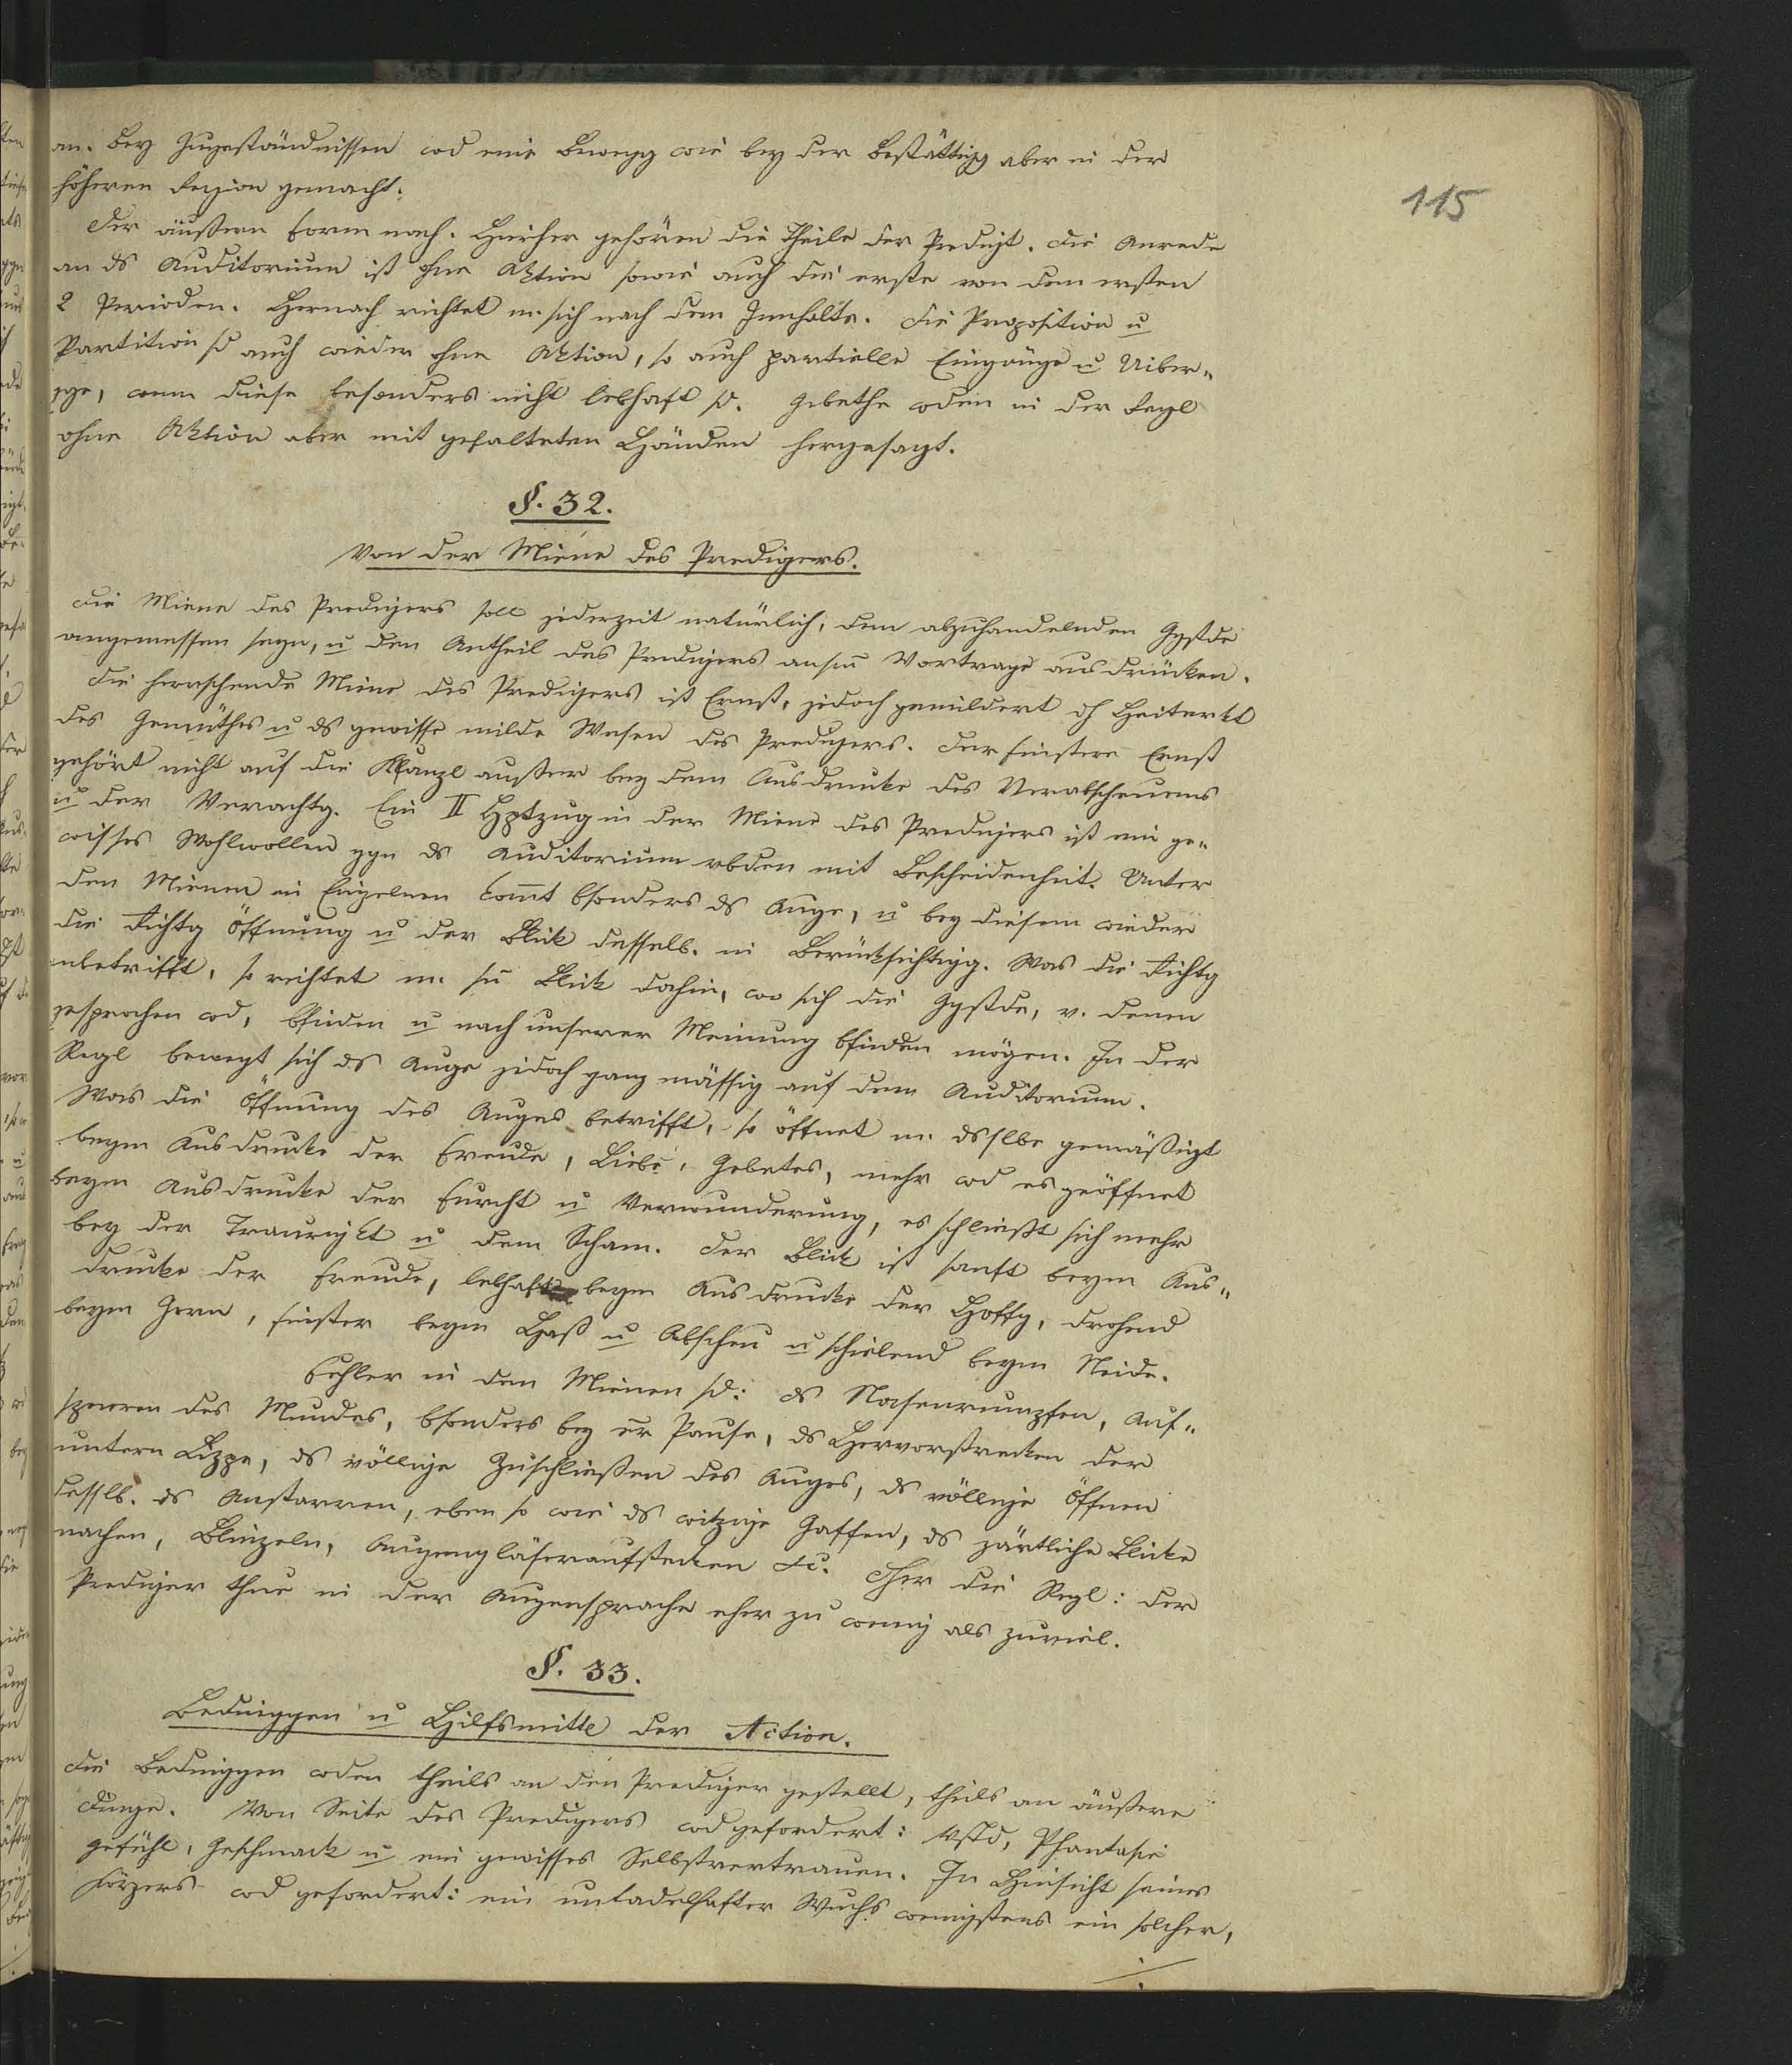 115
an. Bey Zugeständnissen wd eine Bewegg wie bey der Bestättigg aber in der
höheren Region gemacht.
Der äußern Form nach. Hieher gehören die Theile der Predigt. Die Anrede
an ds Auditorium ist ohne Aktion sowie auch die erste von den ersten
2 Perioden. Hernach richtet m. sich nach dem Innhalte. Die Proposition u
Partition sd auch wieder ohne Aktion, so auch partielle Eingänge u Uiber„
gge, wenn diese besonders nicht lebhaft sd. Gebethe wden in der Regl
ohne Aktion aber mit gefalteten Händen hergesagt.
§. 32.
Von der Miene des Predigers.
Die Miene des Predigers soll jederzeit natürlich, den abzuhandelnden Ggstde
angemessen seyn, u den Antheil des Predigers an sm Vortrage ausdrücken.
Die herrschende Miene des Predigers ist Ernst, jedoch gemildert dh Heiterkt
des Gemüthes u ds gewisse milde Wesen des Predigers. Der finstere Ernst
gehört nicht auf die Kanzl außer bey dem Ausdrucke des Verabscheuens
u der Verachtg. Ein II Hptzug in der Miene des Predigers ist ein ge„
wisses Wohlwollen ggn ds Auditorium vbden mit Bescheidenheit. Unter
den Mienen in Einzelnen komt bsonders ds Auge, u bey diesem wieder
die Richtg Öffnung u der Blick desselb. in Berücksichtigg. Was die Richtg
anbetrifft, so richtet m. sn Blick dahin, wo sich die Ggstde, v. denen
gesprochen wd, bfinden u nach unserer Meinung bfinden mögen. In der
Regl bewegt sich ds Auge jedoch ganz mässig auf dem Auditorium.
Was die Öffnung des Auges betrifft, so öffnet m. dsslbe gemäßigt
beym Ausdrucke der Freude, Liebe, Gebetes, mehr wd es geöffnet
beym Ausdrucke der Furcht u Verwunderung, es schließt sich mehr
bey der Traurigkt u dem Scham. Der Blick ist sanft beym Aus„
drucke der Freude, lebhaft beym Ausdrucke der Hoffg, drohend
beym Zorn, finster beym Haß u Abscheu u schielend beym Neide.
Fehler in den Mienen sd: ds Nasenrümpfen, Auf„
sperren des Mundes, bsonders bey er Pause, ds Hervorstrecken der
untern Lippe, ds völlige Zuschließen des Auges, ds völlige Öffnen
desslb. ds Anstarren, eben so wie ds witzige Gaffen, ds zärtliche Blicke
machen, Blinzeln, Augengläseraufstecken &c. Hier die Regl: der
Prediger thue in der Augensprache eher zu wenig als zuviel.
§. 33.
Bedinggen u Hilfsmittl der Action.
Die Bedinggen wden theils an den Prediger gestellt, theils an äußere
Dinge. Von Seite des Predigers wd gefordert: Vstd, Phantasie
Gefühl, Geschmack u ein gewisses Selbstvertrauen. In Hinsicht seines
Körpers wd gefordert: ein untadelhafter Wuchs wenigstens ein solcher,
./.